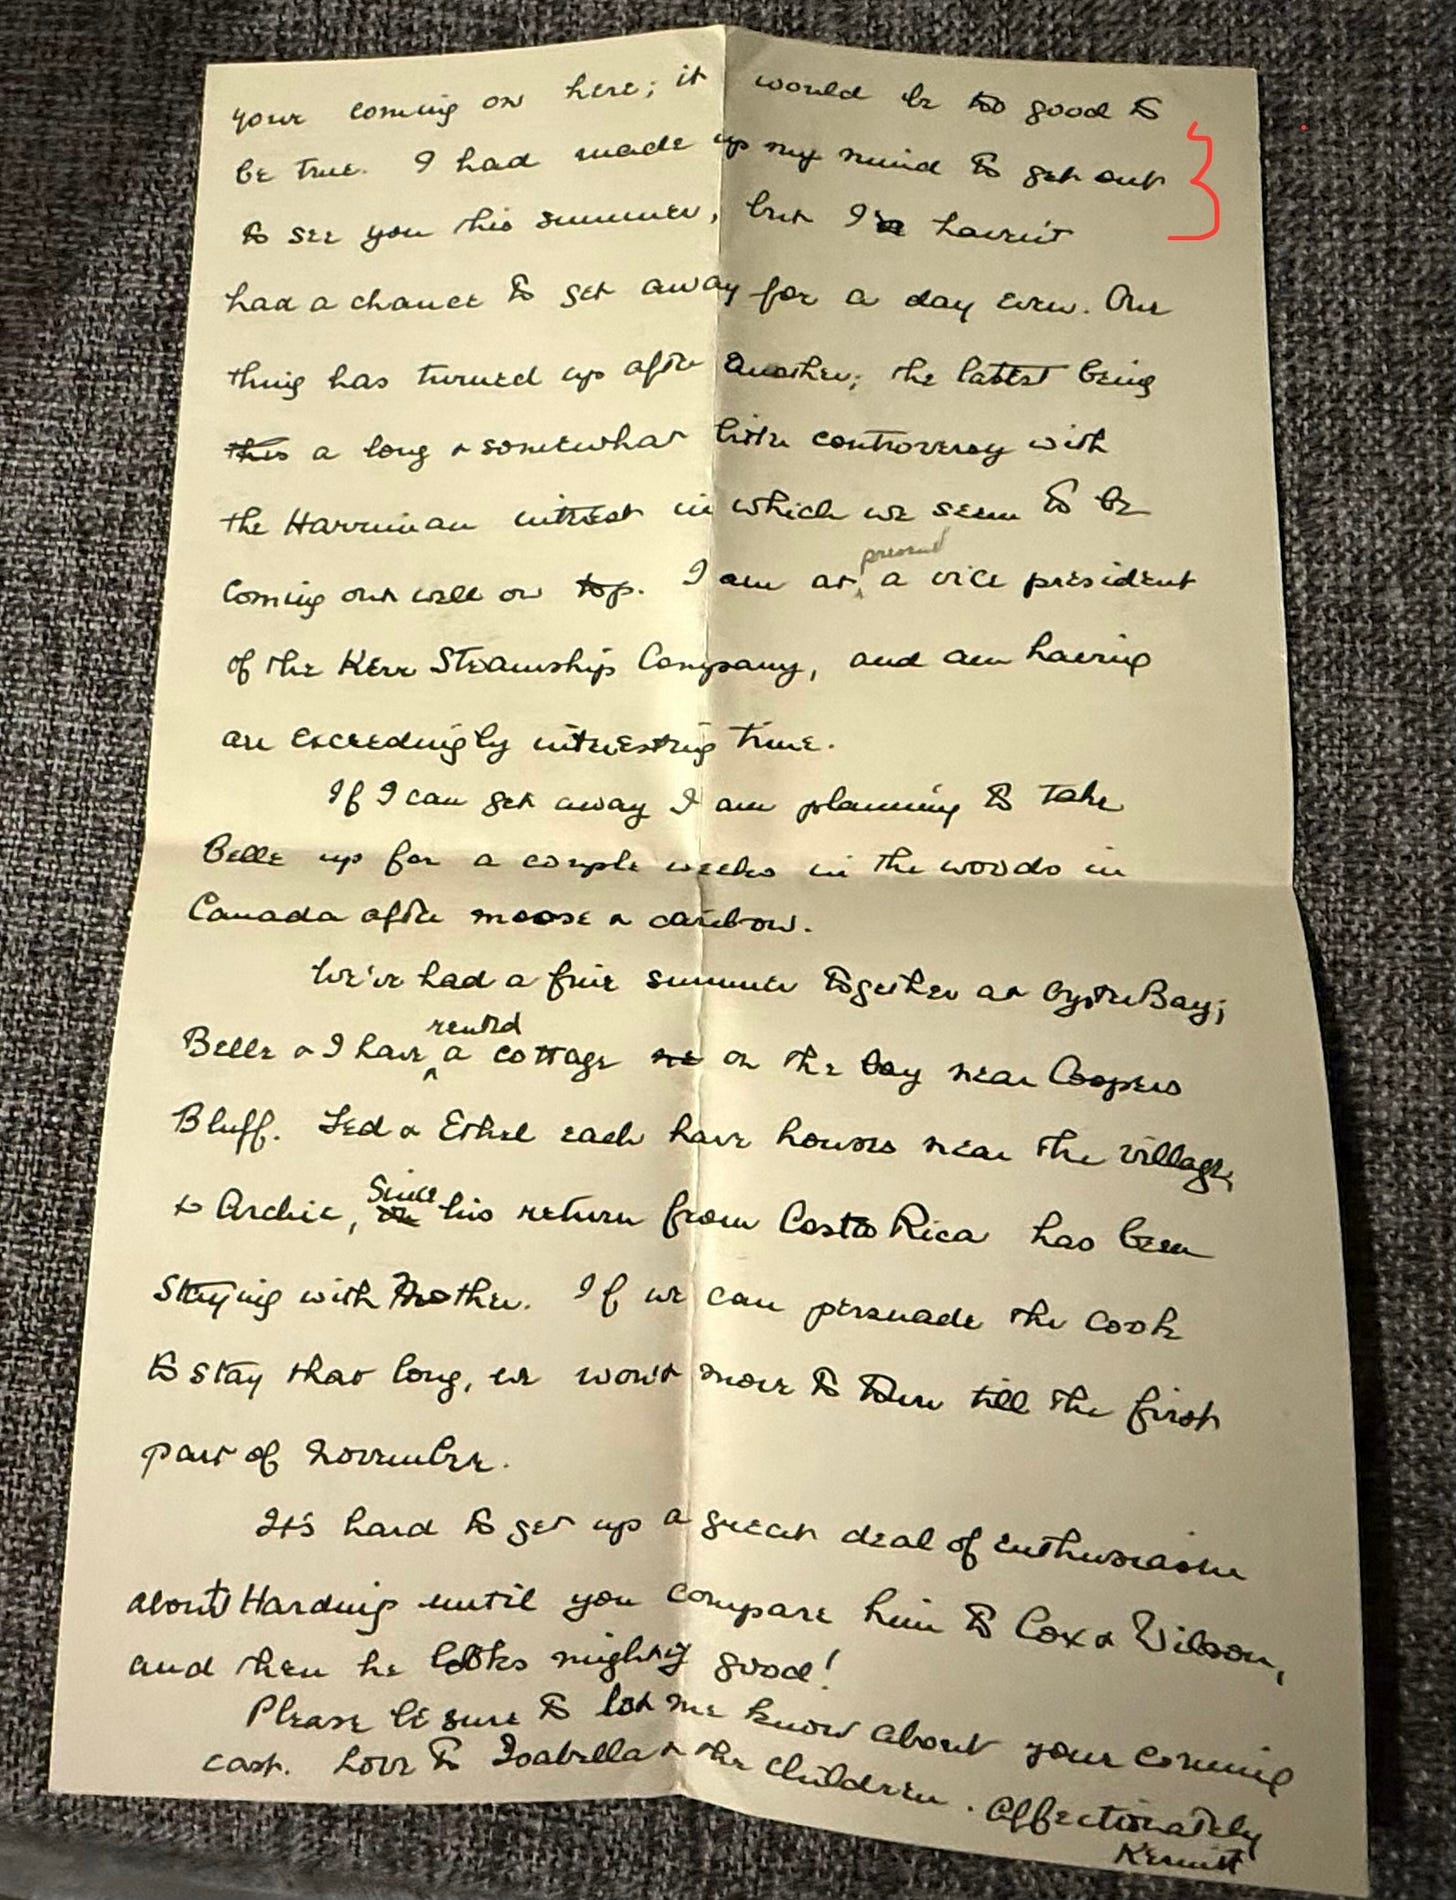 your coming on here; it would be too good to
be true. I had made up my mind to get out
to see you this summer, but I haven't
had a chance to get away for a day even. One
thing has turned up after another; the latest being
this a long & somewhat bitter controversy with
the Harriman interest in which we seem to be
coming out well on top. I am at present a vice president
of the Kerr Steamship Company, and am having
an exceedingly interesting time.
If I can get away I am planning to take
Belle up for a couple weeks in the woods in
Canada after moose & caribou.
We've had a fine summer together at Oyster Bay;
Belle & I have rented a cottage on the bay near Coopers
Bluff. Ted & Ethel each have houses near the village,
& Archie, since his return from Costa Rica has been
staying with Mother. If we can persuade the cook
to stay that long, we won't move to town till the first
part of November.
It's hard to get up a great deal of enthusiasm
about Harding until you compare him to Cox & Wilson,
and then he looks mighty good!
Please be sure to let me know about your coming
east. Love to Isabella & the children. Affectionately
Kermit